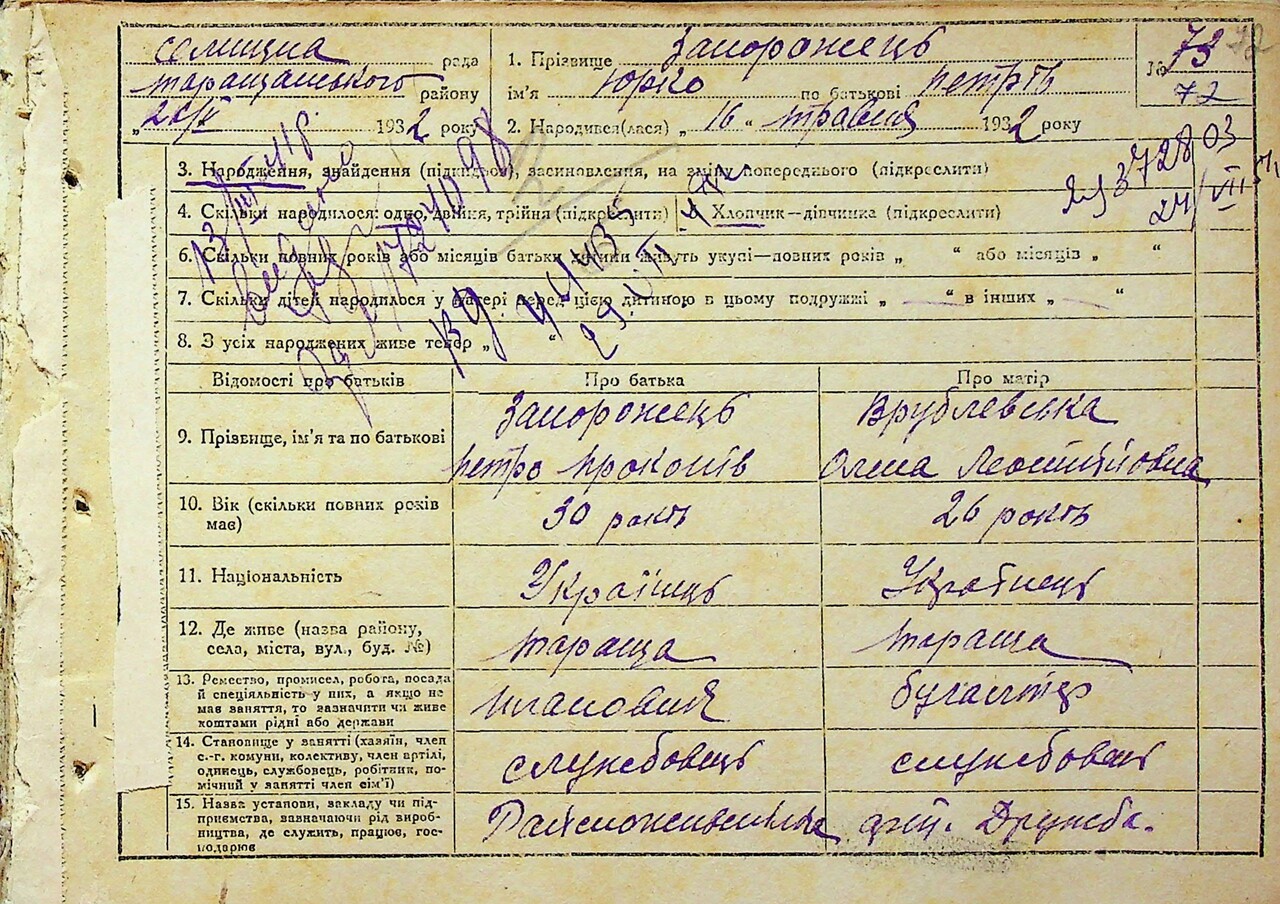 селищна рада
таращанського району
193 2 року
1. Прізвище Запорожець
ім'я Юрко по батькові Петрів
№ 73
72
2. Народився(лася) „ 16 “ травня 193 2 року
3. Народження, знайдення (підкидьок), засиновлення, на зміну попереднього (підкреслити)
4. Скільки народилося: одно, двійня, трійня (підкреслити)
5. Хлопчик—дівчинка (підкреслити)
6. Скільки повних років або місяців батьки дитини живуть укупі—повних років „ “ або місяців „ “
7. Скільки дітей народилося у матері перед цією дитиною в цьому подружжі „ — “ в інших „ — “
8. З усіх народжених живе тепер „ “
Відомості про батьків
Про батька
Про матір
9. Прізвище, ім'я та по батькові
Запорожець
Петро Прокопів
Врублевська
Олена
10. Вік (скільки повних років
має)
30 років
26 років
11. Національність
Українець
Українець
12. Де живе (назва району,
села, міста, вул., буд. №)
Тараща
Тараща
13. Ремество, промисел, робота, посада
й спеціяльність у них, а якщо не
має заняття, то зазначити чи живе
коштами рідні або держави
плановик
бугалтер
14. Становище у занятті (хазяїн, член
с.-г. комуни, колективу, член артілі,
одинець, службовець, робітник, по-
мічний у занятті член сім'ї)
службовець
службовець
15. Назва установи, закладу чи під-
приємства, зазначаючи рід вироб-
ництва, де служить, працює, гос-
подарює
арт. Дружба.